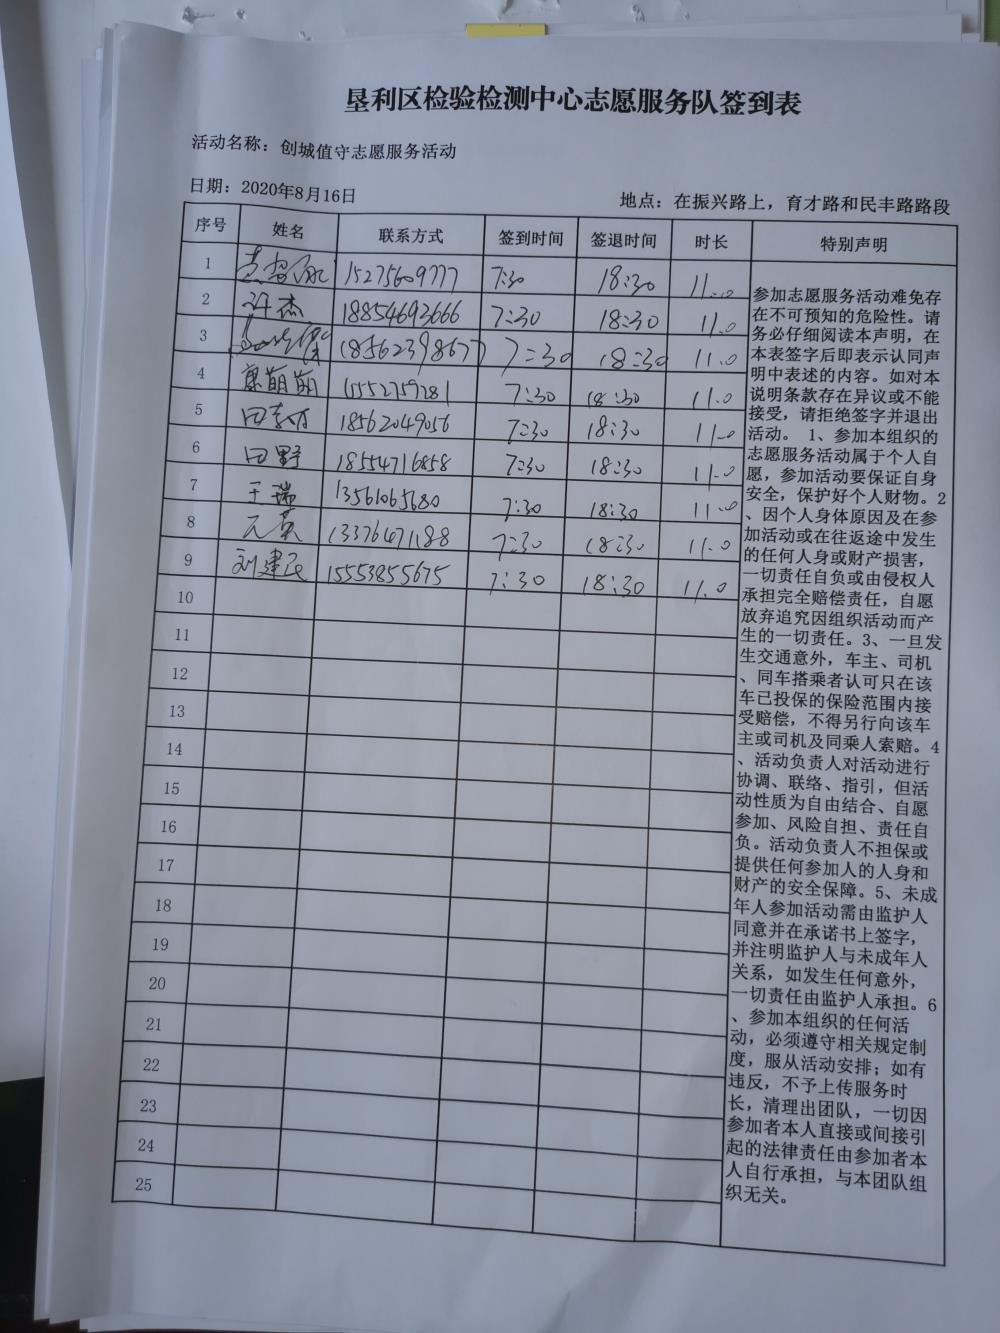 垦利区检验检测中心志愿服务队签到表
活动名称：创城值守志愿服务活动
日期：2020年8月16日 地点：在振兴路上，育才路和民丰路路段
序号 姓名 联系方式 签到时间 签退时间 时长 特别声明
1 15275609777 7:30 18:30 11.0
2 许杰 18854693666 7:30 18:30 11.0
3 18562398677 7:30 18:30 11.0
4 萌萌 15552759281 7:30 18:30 11.0
5 18562049056 7:30 18:30 11.0
6 田野 18554716858 7:30 18:30 11.0
7 王瑞 13561065680 7:30 18:30 11.0
8 元英 13376471188 7:30 18:30 11.0
9 刘建民 15553855675 7:30 18:30 11.0
10
11
12
13
14
15
16
17
18
19
20
21
22
23
24
25
参加志愿服务活动难免存
在不可预知的危险性。请
务必仔细阅读本声明，在
本表签字后即表示认同声
明中表述的内容。如对本
说明条款存在异议或不能
接受，请拒绝签字并退出
活动。 1、参加本组织的
志愿服务活动属于个人自
愿，参加活动要保证自身
安全，保护好个人财物。2
、因个人身体原因及在参
加活动或在往返途中发生
的任何人身或财产损害，
一切责任自负或由侵权人
承担完全赔偿责任，自愿
放弃追究因组织活动而产
生的一切责任。3、一旦发
生交通意外，车主、司机
、同车搭乘者认可只在该
车已投保的保险范围内接
受赔偿，不得另行向该车
主或司机及同乘人索赔。4
、活动负责人对活动进行
协调、联络、指引，但活
动性质为自由结合、自愿
参加、风险自担、责任自
负。活动负责人不担保或
提供任何参加人的人身和
财产的安全保障。5、未成
年人参加活动需由监护人
同意并在承诺书上签字，
并注明监护人与未成年人
关系，如发生任何意外，
一切责任由监护人承担。6
、参加本组织的任何活
动，必须遵守相关规定制
度，服从活动安排；如有
违反，不予上传服务时
长，清理出团队，一切因
参加者本人直接或间接引
起的法律责任由参加者本
人自行承担，与本团队组
织无关。